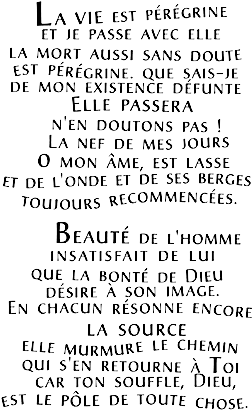 La vie est pérégrine
et je passe avec elle
la mort aussi sans doute
est pérégrine. que sais-je
de mon existence défunte
Elle passera
n'en doutons pas !
La nef de mes jours
O mon âme, est lasse
et de l'onde et de ses berges
toujours recommencées.
Beauté de l'homme
insatisfait de lui
que la bonté de Dieu
désire à son image.
En chacun résonne encore
la source
elle murmure le chemin
qui s'en retourne à Toi
car ton souffle, Dieu,
est le pôle de toute chose.